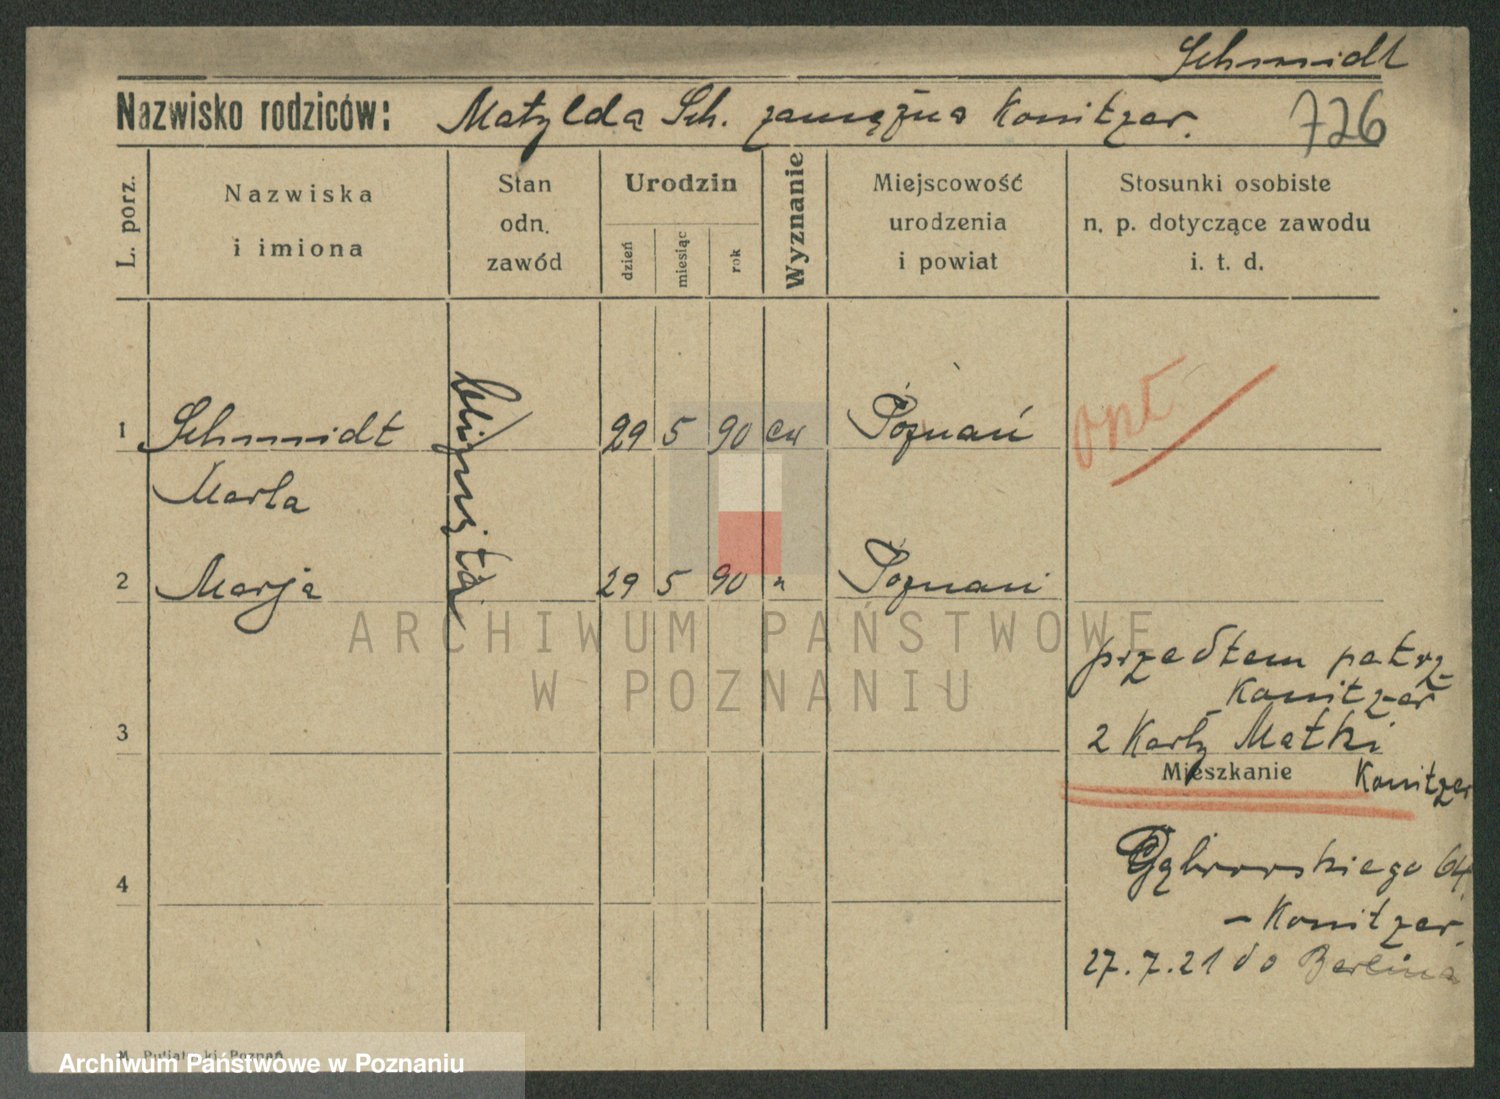 Schmidt
Nazwisko rodziców: Matylda Sch. zamężna Konitzer. 726
L. porz.
Nazwiska
i imiona
Stan
odn.
zawód
Urodzin
dzień
miesiąc
rok
Wyznanie
Miejscowość
urodzenia
i powiat
Stosunki osobiste
n. p. dotyczące zawodu
i. t. d.
1 Schmidt 29 5 90 ew Poznań opt
Marta
bliźnięta
2 Marja 29 5 90 " Poznań
ARCHIWUM PAŃSTWOWE
W POZNANIU
przedtem patrz
Konitzer
3
2 Karty Matki
Mieszkanie Konitzer
4
Dąbrowskiego 64
– Konitzer.
27.7.21 do Berlina
Archiwum Państwowe w Poznaniu